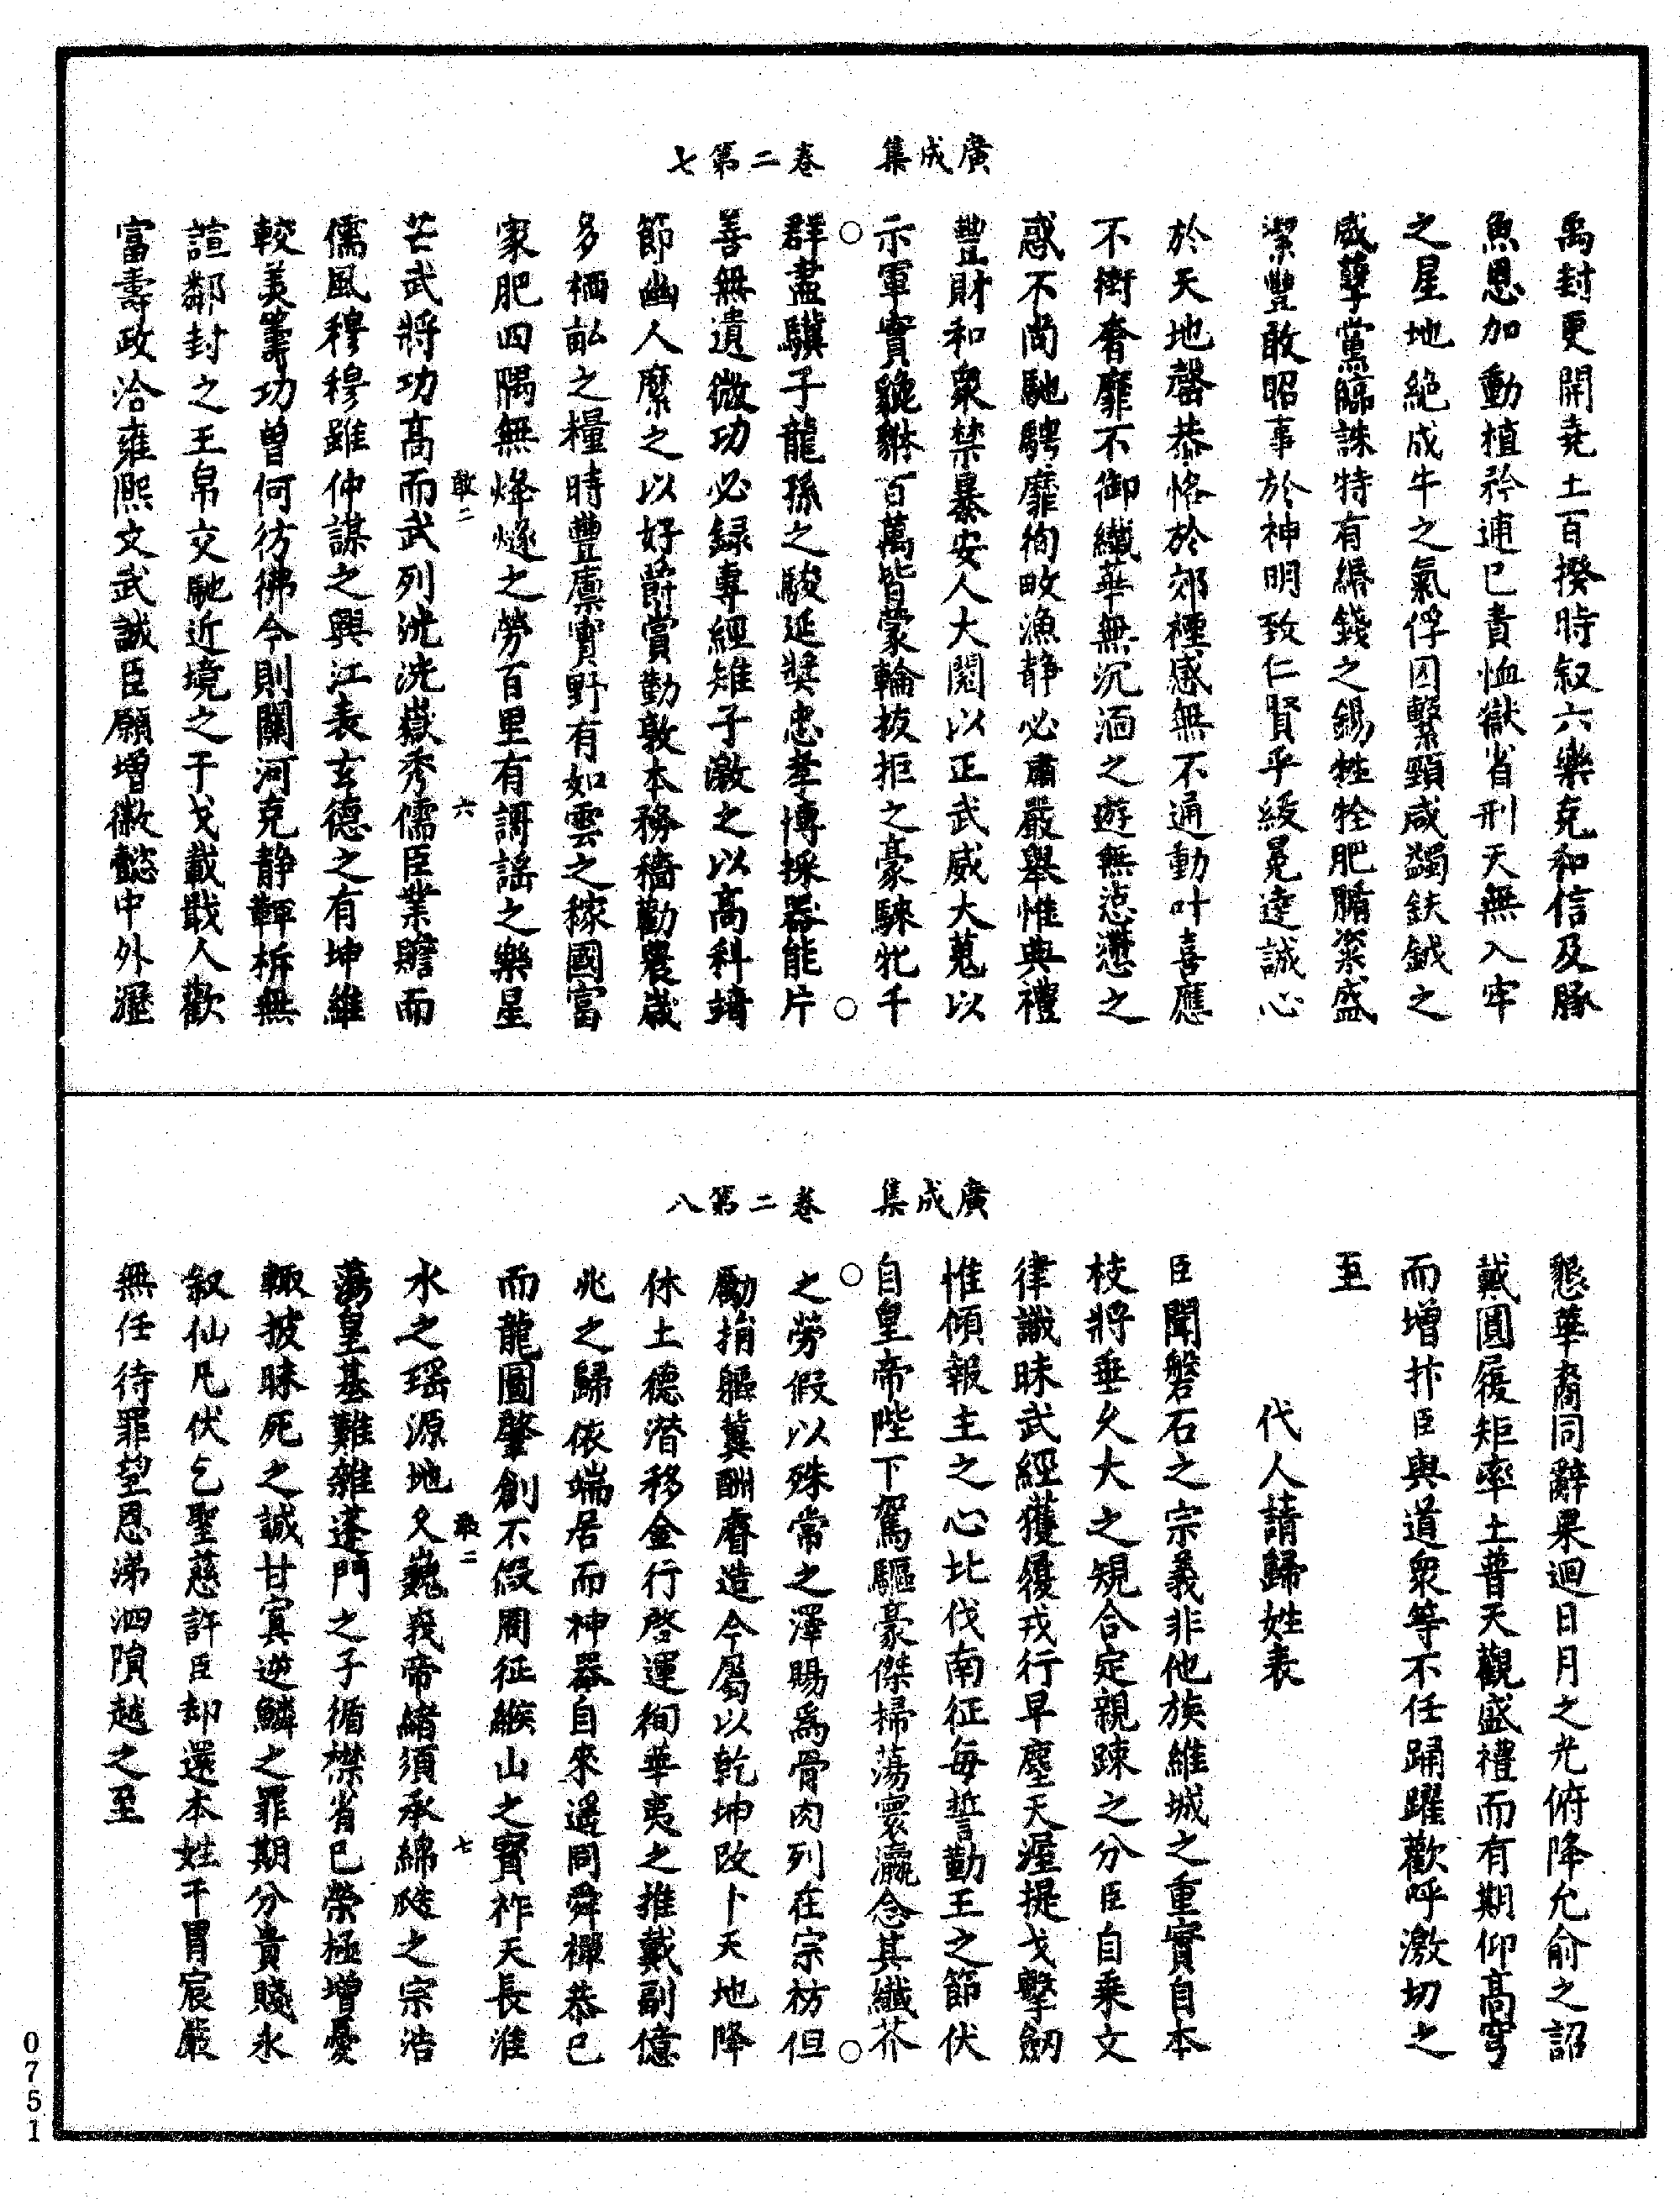 廣成集　卷二第七
禹封更開堯土百揆時叙六樂克和信及豚
魚恩加動植矜逋已責恤獄省刑天無入牢
之星地絶成牛之氣俘囚繫頸咸蠲鈇鉞之
威孽黨臨誅特有緡錢之錫牲牷肥腯粢盛
潔豐敢昭事於神明致仁賢乎綏冕達誠心
於天地罄恭恪於郊禋感無不通動叶喜應
不衒奢靡不御纖華無沉湎之遊無忿懘之
惑不尚馳騁靡徇畋漁静必肅嚴舉惟典禮
豐財和衆禁暴安人大閱以正武威大蒐以
示軍實貔貅百萬皆蒙輪抜拒之豪騋牝千
群盡驥子龍孫之駿延奬忠孝博採器能片
善無遺微功必録專經雉子激之以高科靖
節幽人縻之以好爵賞勤敦本務穡勸農歳
多栖畆之糧時豐廪實野有如雲之稼國富
家肥四隅無烽燧之勞百里有謌謡之樂星
芒武將功高而武列洸洸嶽秀儒臣業贍而
敢二　六
儒風穆穆雖仲謀之興江表玄德之有坤維
較美籌功曾何彷彿今則關河克静鞞柝無
諠鄰封之王帛交馳近境之干戈載戢人歡
富壽政洽雍熙文武誠臣願增徽懿中外瀝
廣成集　卷二第八
懇華裔同辭果迴日月之光俯降允俞之詔
戴圓履矩率土普天觀盛禮而有期仰高穹
而增抃臣與道衆等不任踊躍歡呼激切之
至
代人請歸姓表
臣聞磐石之宗義非他族維城之重實自本
枝將垂久大之規合定親踈之分臣自乗文
律讖昧武經獲履戎行早塵天渥提戈擊劒
惟傾報主之心北伐南征毎誓勤王之節伏
自皇帝陛下駕驅豪傑掃蕩寰瀛念其纖芥
之勞假以殊常之澤賜爲骨肉列在宗枋但
勵捐軀冀酬睿造今屬以乾坤改卜天地降
休土德潜移金行啓運徇華夷之推戴副億
兆之歸依端居而神器自來遥同舜禪恭已
而龍圖肇創不假周征緱山之寳祚天長淮
水之瑶源地久巍峩帝緒須承綿瓞之宗浩
敢二　七
蕩皇基難雜蓬門之子循襟省已榮極增憂
輙披昧死之誠甘寘逆鱗之罪期分貴賤永
叙仙凡伏乞聖慈許臣却還本姓干冒宸嚴
無任待罪望恩涕泗隕越之至
0751